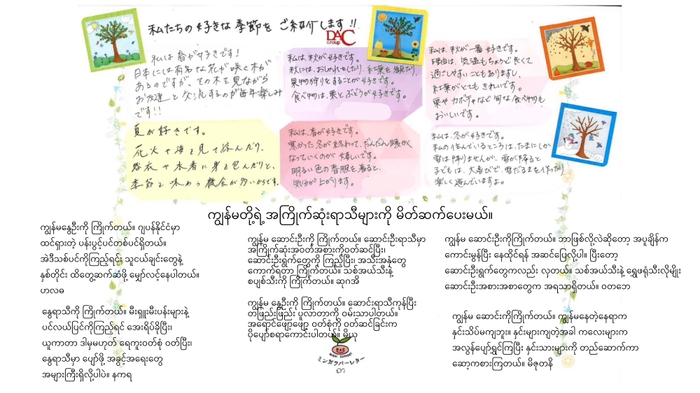 私たちの好きな季節をご紹介します!!
DAC
Group
私は春が好きです!
日本には有名な花が咲く木が
あるのですが、その木を見ながら
お友達と交流するのが毎年楽しみ
です!!
私は、秋が好きです。
秋には、おしゃれをしたり、紅葉を観たり、
果物狩りをすることが好きです。
食べ物は、栗とぶどうが好きです。
私は、秋が一番好きです。
理由は、気温もちょうど良くて
過ごしやすいこともありますし、
紅葉がとてもきれいです。
栗やカボチャなど旬な食べ物も
おいしいです。
夏が好きです。
花火や海を見て遊んだり、
浴衣や水着に身を包んだりと、
季節を味わう機会が多いからです。
私は、春が好きです。
寒かった冬が終わって、だんだん暖かく
なっていくのがうれしいです。
明るい色の春服を着ると、
気分が上がります。
私は、冬が好きです。
私の住んでいるところは、たまにしか
雪は降りませんが、雪が降ると
子どもは、大喜びで、雪だるまを作ったり
楽しく遊んでいますよ。
ကျွန်မတို့ရဲ့အကြိုက်ဆုံးရာသီများကို မိတ်ဆက်ပေးမယ်။
ကျွန်မနွေဦးကို ကြိုက်တယ်။ ဂျပန်နိုင်ငံမှာ
ထင်ရှားတဲ့ ပန်းပွင့်ပင်တစ်ပင်ရှိတယ်။
အဲဒီသစ်ပင်ကိုကြည့်ရင်း သူငယ်ချင်းတွေနဲ့
နှစ်တိုင်း ထိတွေ့ဆက်ဆံဖို့ မျှော်လင့်နေပါတယ်။
ဟလမ
နွေရာသီကို ကြိုက်တယ်။ မီးရှူးမီးပန်းများနဲ့
ပင်လယ်ပြင်ကိုကြည့်ရင် အေးရိပ်ခိုပြီး၊
ယူကာတာ ဒါမှမဟုတ် ရေကူးဝတ်စုံ ဝတ်ပြီး၊
နွေရာသီမှာ ပျော်ဖို့ အခွင့်အရေးတွေ
အများကြီးရှိလို့ပါပဲ။ နကရ
ကျွန်မ ဆောင်းဦးကို ကြိုက်တယ်။ ဆောင်းဦးရာသီမှာ
အကြိုက်ဆုံးအဝတ်အစားကိုဝတ်ဆင်ပြီး၊
ဆောင်းဦးရွက်တွေကို ကြည့်ပြီး၊ အသီးအနှံတွေ
ကောက်ရတာ ကြိုက်တယ်။ သစ်အယ်သီးနဲ့
စပျစ်သီးကို ကြိုက်တယ်။ ဆုဂအိ
ကျွန်မ နွေဦးကို ကြိုက်တယ်။ ဆောင်းရာသီကုန်ပြီး
တဖြည်းဖြည်း ပူလာတာကို ဝမ်းသာပါတယ်။
အရောင်ဖျော့ဖျော့ ဝတ်စုံကို ဝတ်ဆင်ခြင်းက
ပိုပျော်စရာကောင်းပါတယ်။ မိယု
ကျွန်မ ဆောင်းဦးကိုကြိုက်တယ်။ ဘာဖြစ်လို့လဲဆိုတော့ အပူချိန်က
ကောင်းမွန်ပြီး နေထိုင်ရန် အဆင်ပြေလို့ပါ။ ပြီးတော့
ဆောင်းဦးရွက်တွေကလည်း လှတယ်။ သစ်အယ်သီးနဲ့ ရွှေဖရုံသီးလိုမျိုး
ဆောင်းဦးအစားအစာတွေက အရသာရှိတယ်။ ဝတဘေ
ကျွန်မ ဆောင်းကိုကြိုက်တယ်။ ကျွန်မနေတဲ့နေရာက
နှင်းသိပ်မကျဘူး။ နှင်းများကျတဲ့အခါ ကလေးများက
အလွန်ပျော်ရွှင်ကြပြီး နှင်းသားများကို တည်ဆောက်ကာ
ဆော့ကစားကြတယ်။ မိဇုတနိ
ミンガラバーレター